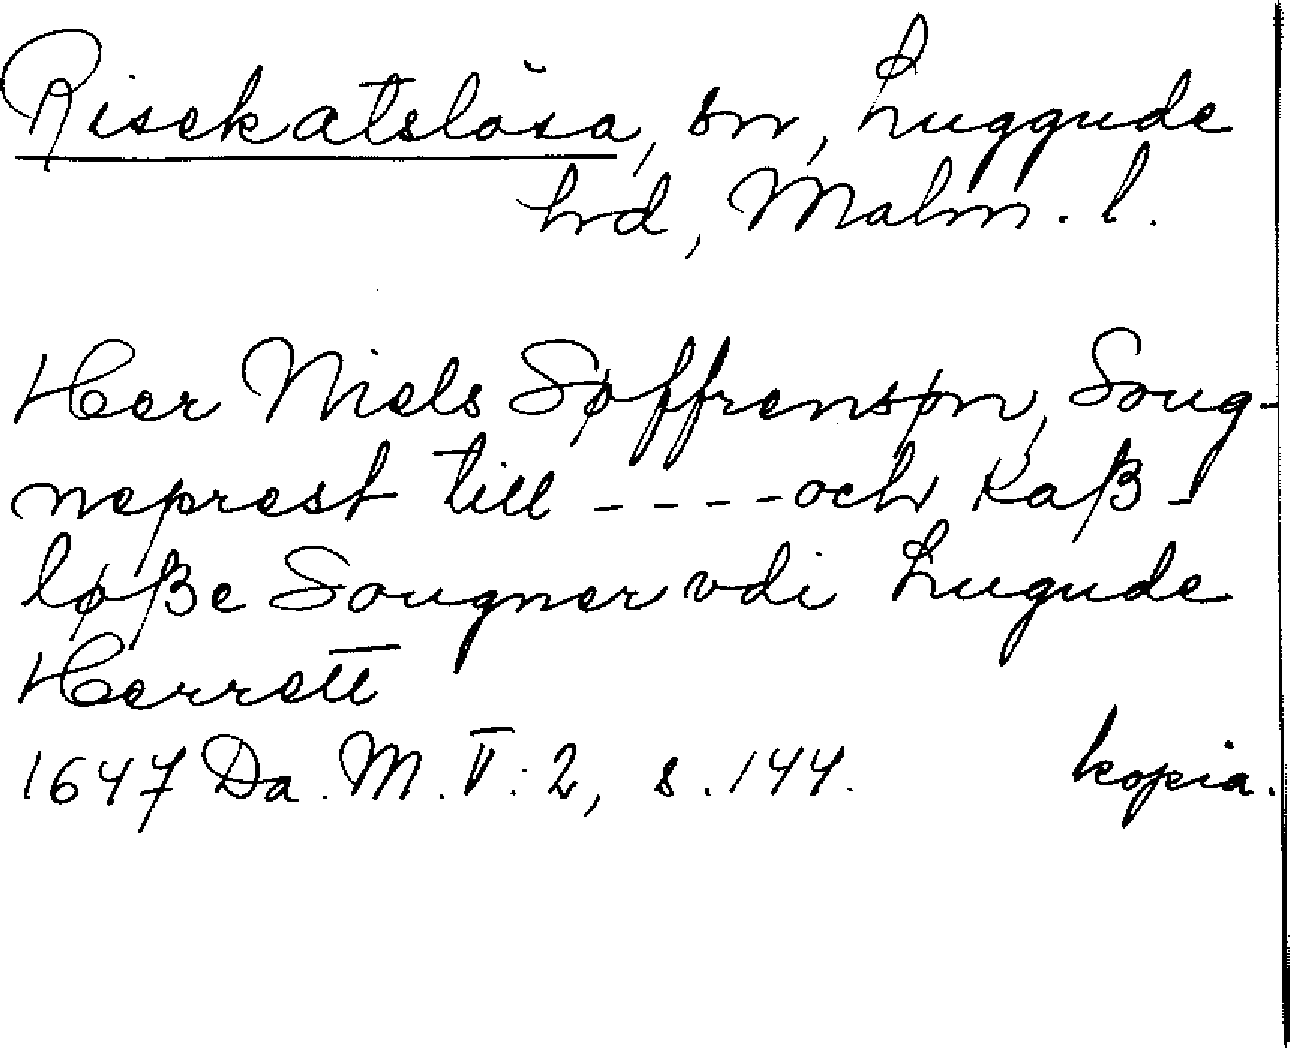 Risekatslösa, sn, Luggude
hrd, Malm. l.
Her Niels Søffrensøn, Soug-
neprest till ---- och Kaß-
løße Sougner vdi Lugude
Herrett
1647 Da. M. V: 2, s. 144. kopia.